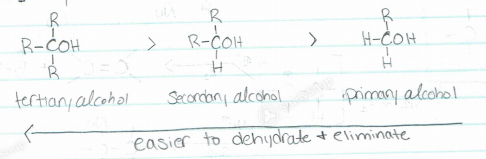 R R R
R-COH > R-COH > H-COH
R H H
tertiary alcohol Secondary alcohol primary alcohol
easier to dehydrate + eliminate